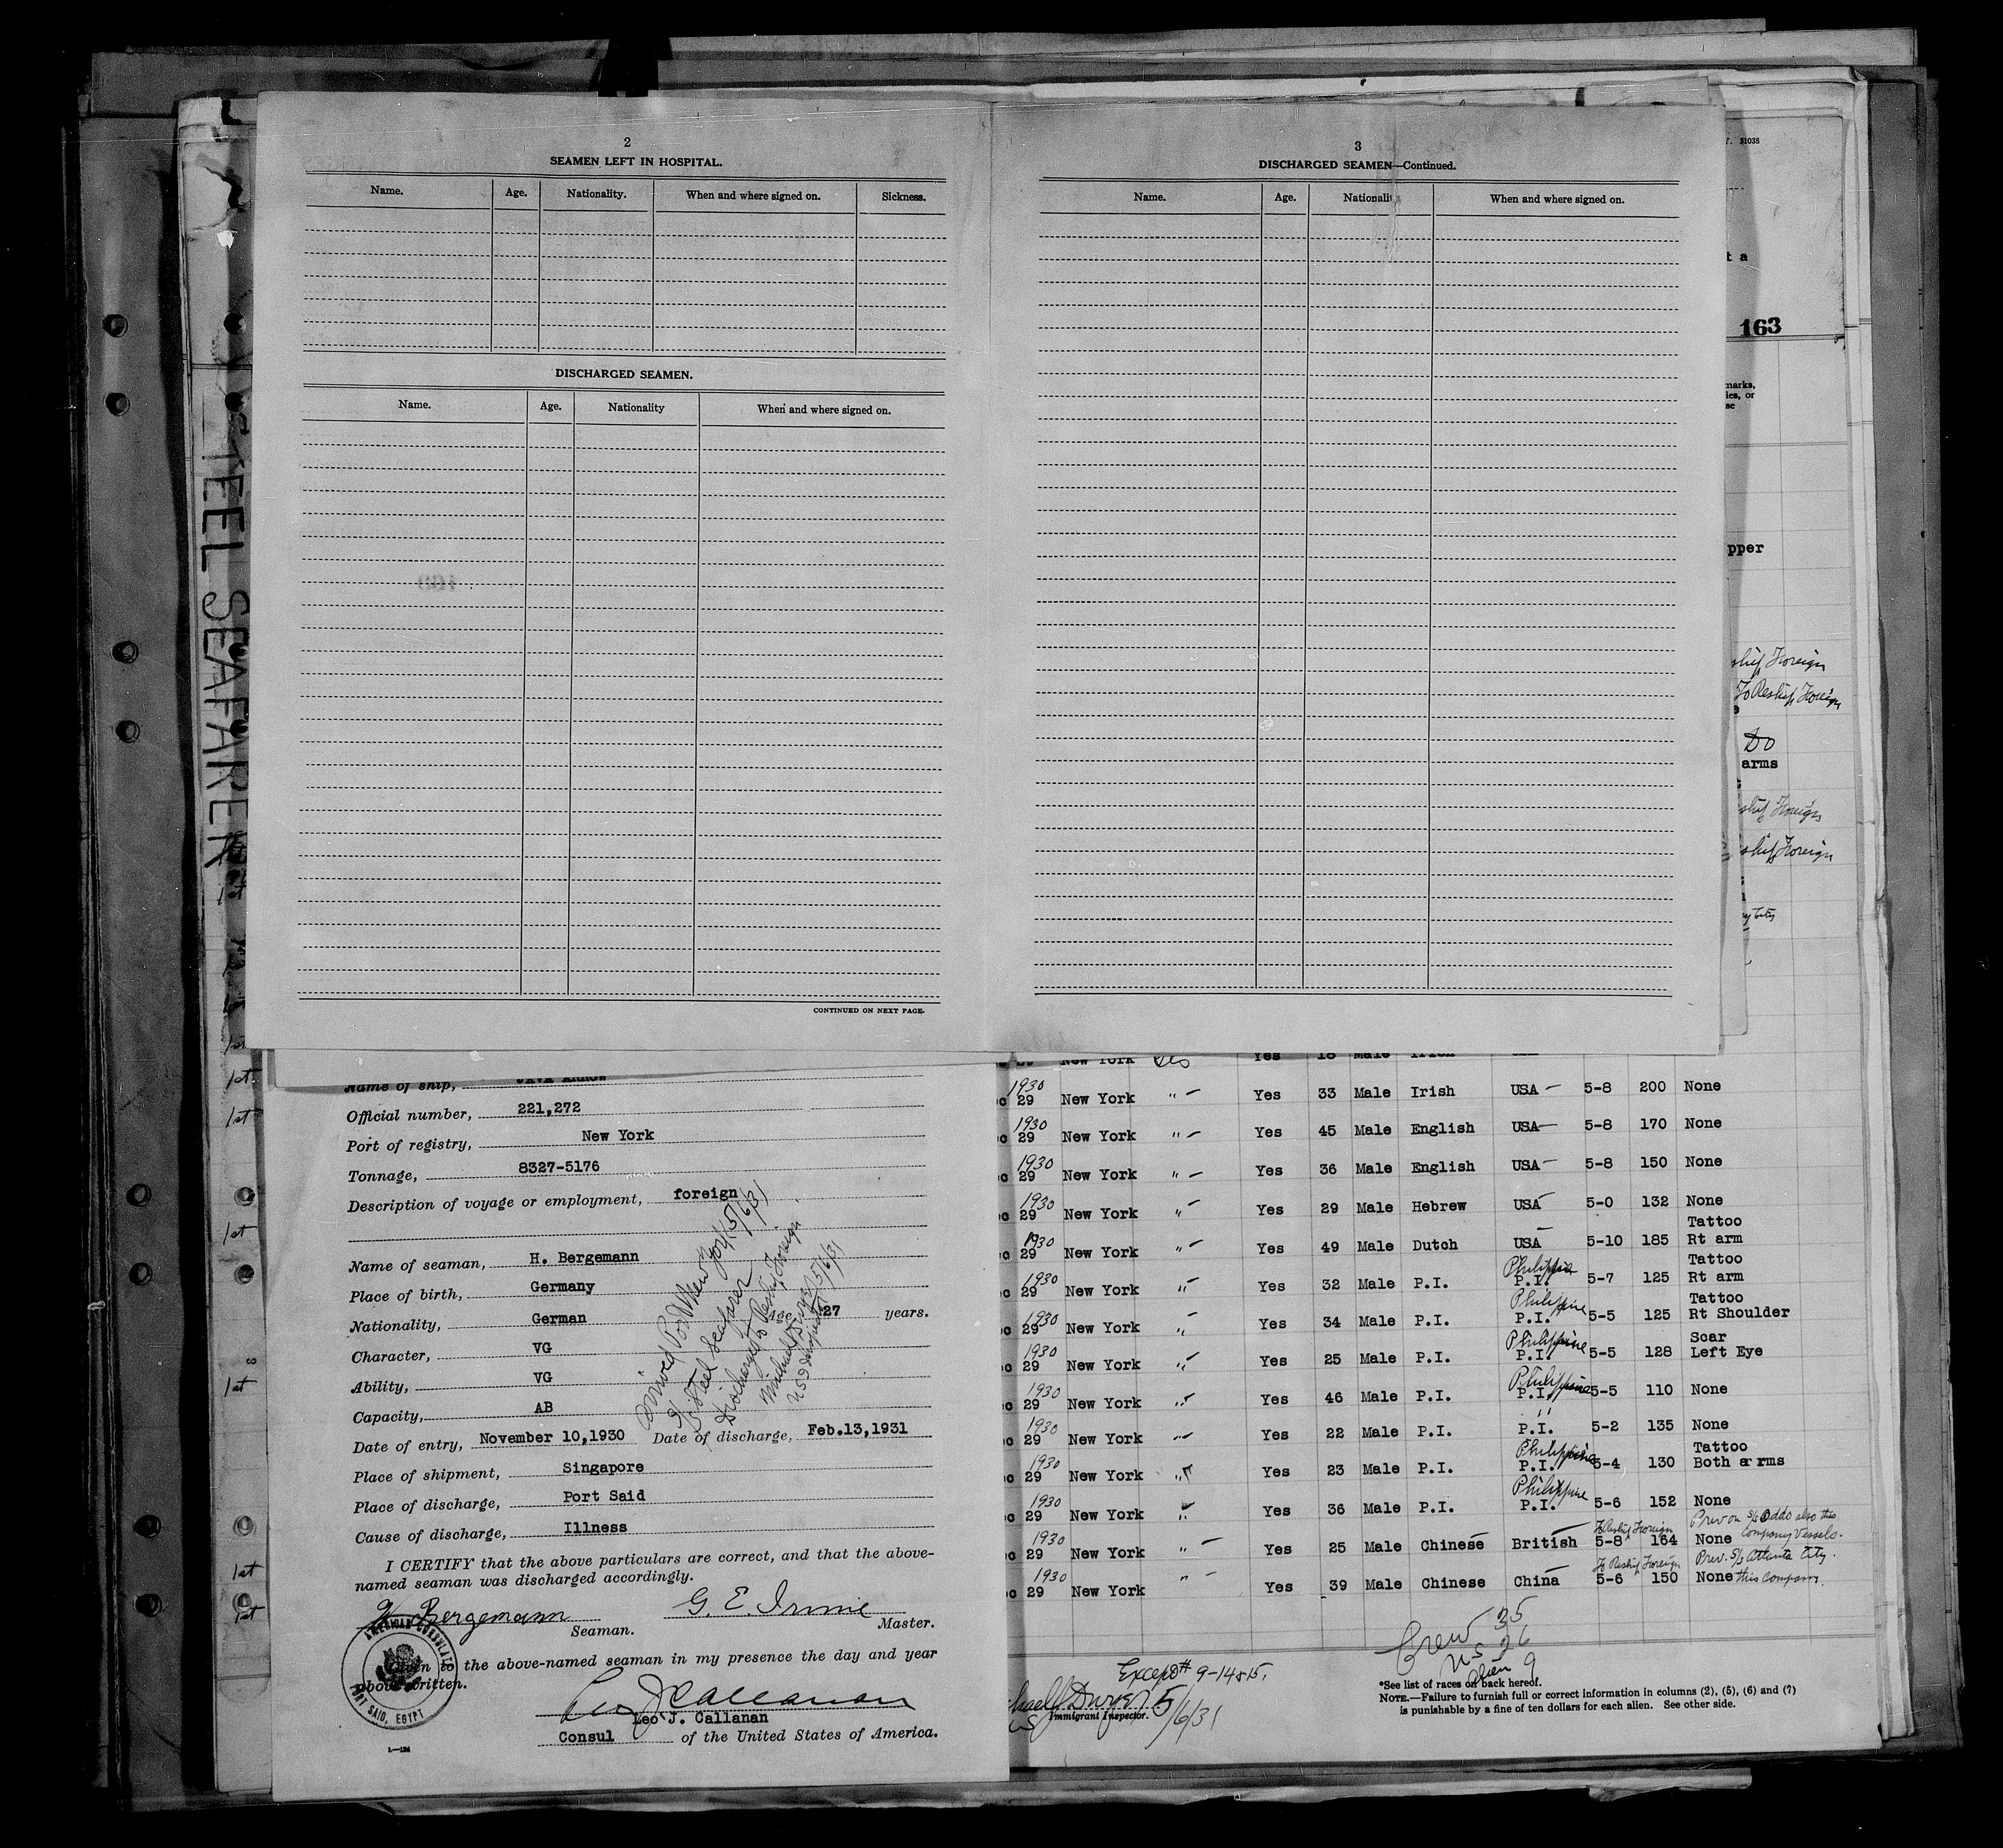 2
SEAMEN LEFT IN HOSPITAL.
Name. Age. Nationality. When and where signed on. Sickness.
DISCHARGED SEAMEN.
Name. Age. Nationality When and where signed on.
CONTINUED ON NEXT PAGE.
3
DISCHARGED SEAMEN—Continued.
Name. Age. Nationality When and where signed on.
31038
t a
163
marks,
ies, or
se
pper
ship Foreign
To Reship Foreign
Do
arms
ship Foreign
ship Foreign
STEEL SEAFARER
1st
1st
1st
1st
1st
1st
1st
1st
Name of ship, JAVA ARROW
Official number, 221,272
Port of registry, New York
Tonnage, 8327-5176
Description of voyage or employment, foreign
Name of seaman, H. Bergemann
Place of birth, Germany
Nationality, German Age 27 years.
Character, VG
Ability, VG
Capacity, AB
Date of entry, November 10,1930 Date of discharge, Feb.13,1931
Place of shipment, Singapore
Place of discharge, Port Said
Cause of discharge, Illness
Arrived Port New York 5/6/31
S/S Steel Seafarer
Discharged to Reship Foreign
Michael J Dwyer 5/6/31
US Inspector
I CERTIFY that the above particulars are correct, and that the above-
named seaman was discharged accordingly.
H Bergemann G. E. Irvine
Seaman. Master.
Given to the above-named seaman in my presence the day and year
above written.
AMERICAN CONSULATE
PORT SAID, EGYPT
Leo J Callanan
Leo J. Callanan
Consul of the United States of America.
1—124
New York Yes Yes 18 Male Irish
1930
29 New York " – Yes 33 Male Irish USA – 5-8 200 None
1930
29 New York " – Yes 45 Male English USA – 5-8 170 None
1930
29 New York " – Yes 36 Male English USA – 5-8 150 None
1930
29 New York " – Yes 29 Male Hebrew USA – 5-0 132 None
1930 Tattoo
29 New York " – Yes 49 Male Dutch USA – 5-10 185 Rt arm
1930 Philippine Tattoo
29 New York " – Yes 32 Male P.I. P.I. 5-7 125 Rt arm
1930 Philippine Tattoo
29 New York " – Yes 34 Male P.I. P.I. 5-5 125 Rt Shoulder
1930 Philippine Scar
29 New York " – Yes 25 Male P.I. P.I. 5-5 128 Left Eye
1930 Philippine
29 New York " – Yes 46 Male P.I. P.I. 5-5 110 None
1930 "
29 New York " – Yes 22 Male P.I. P.I. 5-2 135 None
1930 Philippine Tattoo
29 New York " Yes 23 Male P.I. P.I. 5-4 130 Both arms
1930 Philippine
29 New York " – Yes 36 Male P.I. P.I. 5-6 152 None
1930 To Reship Foreign Prev on S/S Oddo also this
29 New York " – Yes 25 Male Chinese British 5-8 164 None Company Vessels.
1930 To Reship Foreign Prev. S/S Atlanta City.
29 New York " – Yes 39 Male Chinese China 5-6 150 None this Company.
Crew 35
US 26
Alien 9
Except # 9-14&15.
Michael J Dwyer 5/6/31
Immigrant Inspector.
*See list of races on back hereof.
NOTE.—Failure to furnish full or correct information in columns (2), (5), (6) and (7)
is punishable by a fine of ten dollars for each alien. See other side.